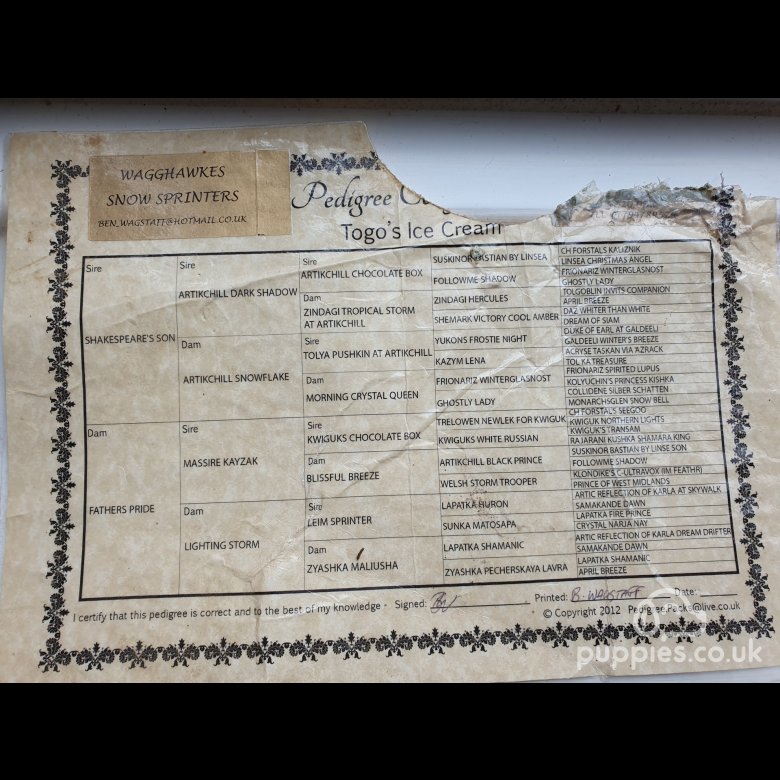 WAGGHAWKES
SNOW SPRINTERS
BEN_WAGSTAFF@HOTMAIL.CO.UK
Pedigree
Togo's Ice Cream
Sire
SHAKESPEARE'S SON
Dam
FATHERS PRIDE
Sire
ARTIKCHILL DARK SHADOW
Dam
ARTIKCHILL SNOWFLAKE
Sire
MASSIRE KAYZAK
Dam
LIGHTING STORM
Sire
ARTIKCHILL CHOCOLATE BOX
Dam
ZINDAGI TROPICAL STORM
AT ARTIKCHILL
Sire
TOLYA PUSHKIN AT ARTIKCHILL
Dam
MORNING CRYSTAL QUEEN
Sire
KWIGUKS CHOCOLATE BOX
Dam
BLISSFUL BREEZE
Sire
LEIM SPRINTER
Dam
ZYASHKA MALIUSHA
SUSKINOR BASTIAN BY LINSEA
FOLLOWME SHADOW
ZINDAGI HERCULES
SHEMARK VICTORY COOL AMBER
YUKONS FROSTIE NIGHT
KAZYM LENA
FRIONARIZ WINTERGLASNOST
GHOSTLY LADY
TRELOWEN NEWLEK FOR KWIGUK
KWIGUKS WHITE RUSSIAN
ARTIKCHILL BLACK PRINCE
WELSH STORM TROOPER
LAPATKA HURON
SUNKA MATOSAPA
LAPATKA SHAMANIC
ZYASHKA PECHERSKAYA LAVRA
CH FORSTALS KALIZNIK
LINSEA CHRISTMAS ANGEL
FRIONARIZ WINTERGLASNOST
GHOSTLY LADY
TOLGOBLIN INVITS COMPANION
APRIL BREEZE
DAZ WHITER THAN WHITE
DREAM OF SIAM
DUKE OF EARL AT GALDEELI
GALDEELI WINTER'S BREEZE
ACRYSE TASKAN VIA AZRACK
TOLKA TREASURE
FRIONARIZ SPIRITED LUPUS
KOLYUCHIN'S PRINCESS KISHKA
COLLIDENE SILBER SCHATTEN
MONARCHSGLEN SNOW BELL
CH FORSTAL'S SEEGOO
KWIGUK NORTHERN LIGHTS
KWIGUK'S TRANSAM
RAJARANI KUSHKA SHAMARA KING
SUSKINOR BASTIAN BY LINSE SON
FOLLOWME SHADOW
KLONDIKE'S C-ULTRAVOX (IM FEATHR)
PRINCE OF WEST MIDLANDS
ARTIC REFLECTION OF KARLA AT SKYWALK
SAMAKANDE DAWN
LAPATKA FIRE PRINCE
CRYSTAL NARJA NAY
ARTIC REFLECTION OF KARLA DREAM DRIFTER
SAMAKANDE DAWN
LAPATKA SHAMANIC
APRIL BREEZE
I certify that this pedigree is correct and to the best of my knowledge · Signed: Printed: B. WAGSTAFF Date:
· © Copyright 2012 Pedigree.Packs@live.co.uk
puppies.co.uk